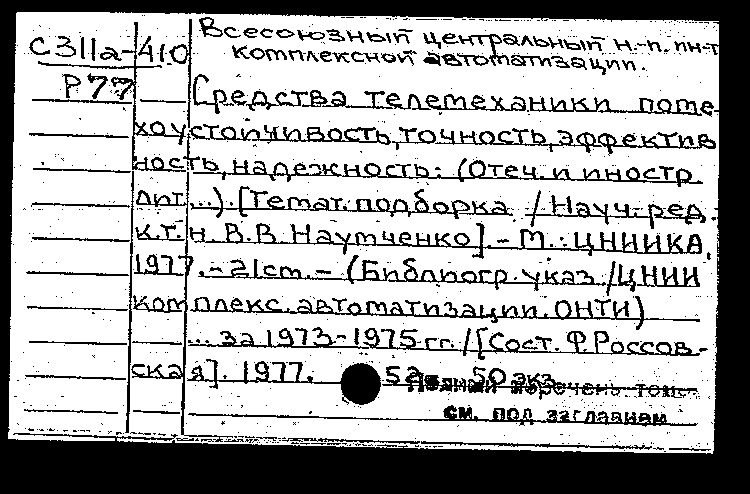 Всесоюзный центральный н.-п. ин-т
С311а-410 комплексной автоматизации.
Р77
Средства телемеханики поме
хоустойчивость, точность, эффектив
ность, надежность: (Отеч. и иностр.
лит...). [Темат. подборка / Науч. ред.
к.т.н. В.В. Наумченко]. - М.: ЦНИИКА,
1977. - 21см. - (Библиогр. указ. / ЦНИИ
комплекс. автоматизации. ОНТИ)
... за 1973-1975 гг. / [Сост. Ф. Россов-
ская]. 1977. 50 экз.
Полный перечень
см. под заглавием